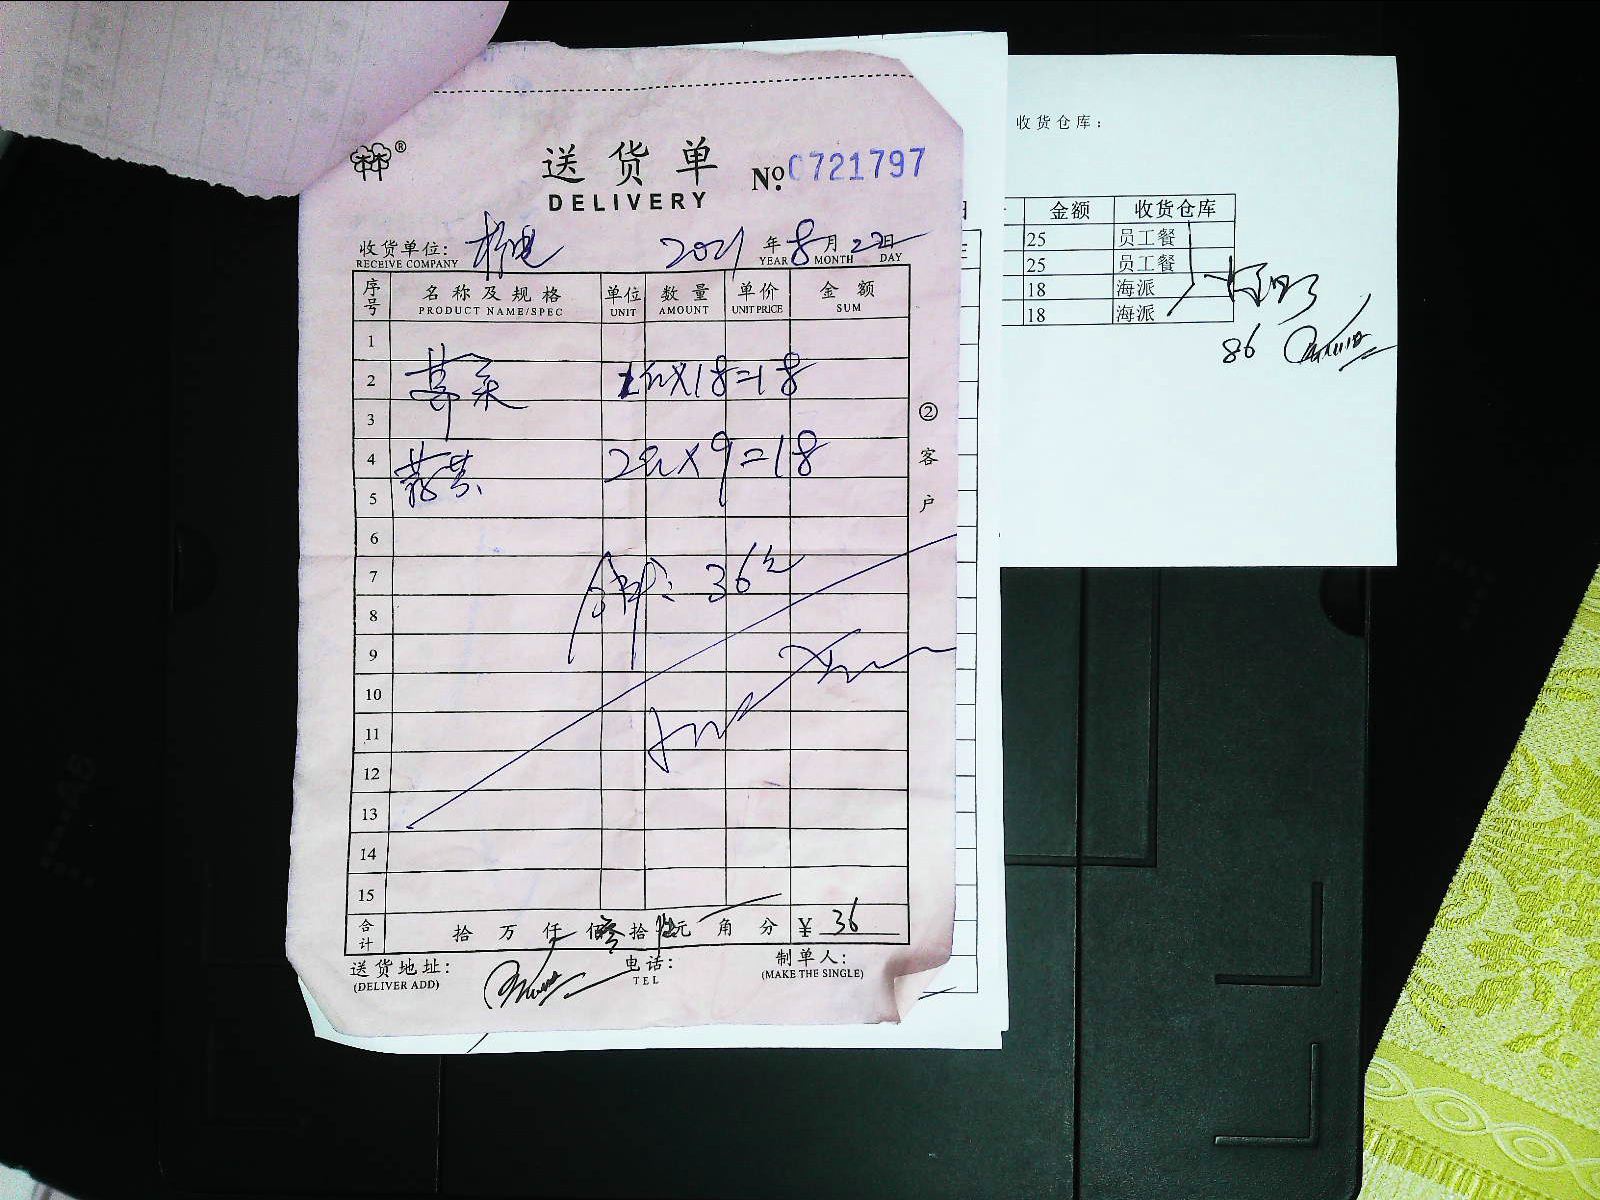 送货单
DELIVERY
No. 0721797
收货单位:
RECEIVE COMPANY
2021 年 8 月 22 日
YEAR MONTH DAY
序号 名称及规格 单位 数量 单价 金额
PRODUCT NAME/SPEC UNIT AMOUNT UNIT PRICE SUM
1
2 ×18=18
3
4 2 ×9=18
5
6
7 36
8
9
10
11
12
13
14
15
合计 拾 万 仟 佰 叁 拾 陆 元 角 分 ¥ 36
送货地址: 电话: 制单人:
(DELIVER ADD) TEL (MAKE THE SINGLE)
② 客户
收货仓库:
金额 收货仓库
25 员工餐
25 员工餐
18 海派
18 海派
86